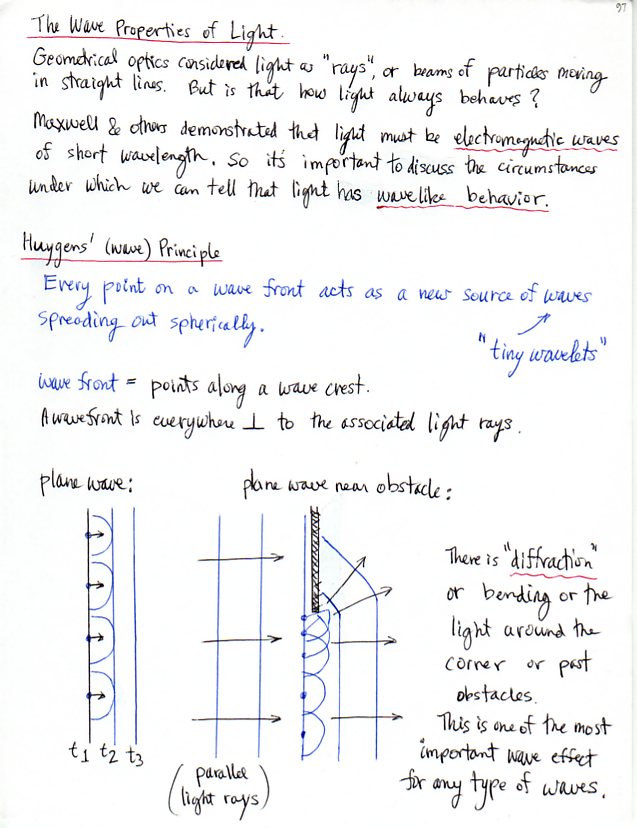 97
The Wave Properties of Light.
Geometrical optics considered light as "rays", or beams of particles moving
in straight lines. But is that how light always behaves?
Maxwell & others demonstrated that light must be electromagnetic waves
of short wavelength. So it's important to discuss the circumstances
under which we can tell that light has wavelike behavior.
Huygens' (wave) Principle
Every point on a wave front acts as a new source of waves
spreading out spherically.
"tiny wavelets"
wave front = points along a wave crest.
A wavefront is everywhere ⊥ to the associated light rays.
plane wave:
t1 t2 t3
plane wave near obstacle:
(parallel
light rays)
There is "diffraction"
or bending or the
light around the
corner or past
obstacles.
This is one of the most
important wave effect
for any type of waves.